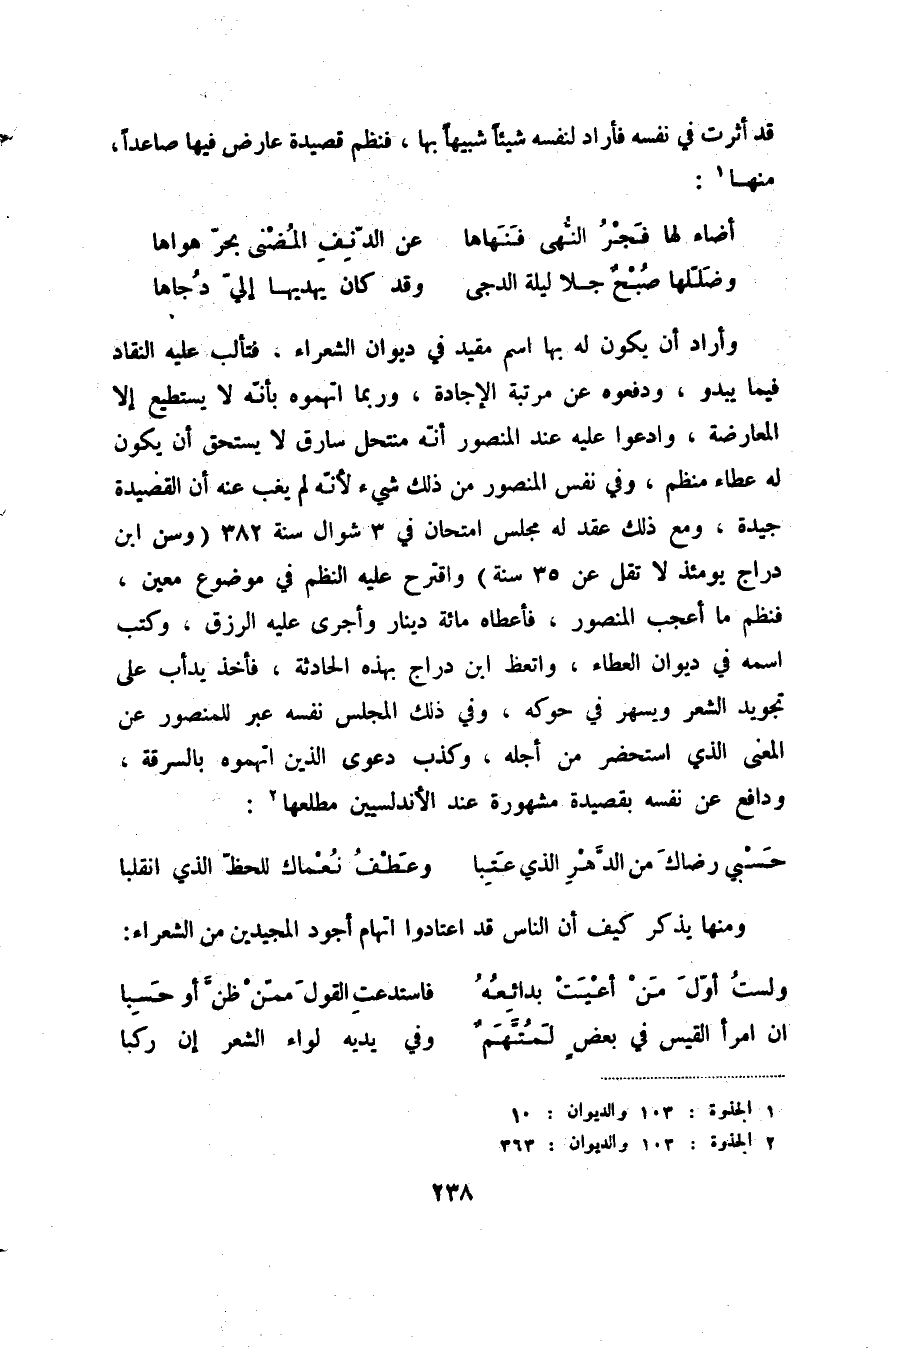 قد أثرت في نفسه فأراد لنفسه شيئاً شبيهاً بها ، فنظم قصيدة عارض فيها صاعداً،
منهـا ١ :
أضاء لها فَجْرُ النُّهى فَنَهاها عن الدّنِفِ المُضْنى بحرّ هواها
وضَلّلها صُبْحٌ جـلا ليلة الدجى وقد كان يهديهـا إليّ دُجاها
وأراد أن يكون له بها اسم مقيد في ديوان الشعراء ، فتألب عليه النقاد
فيما يبدو ، ودفعوه عن مرتبة الإجادة ، وربما اتهموه بأنّه لا يستطيع إلا
المعارضة ، وادعوا عليه عند المنصور أنّه منتحل سارق لا يستحق أن يكون
له عطاء منظم ، وفي نفس المنصور من ذلك شيء لأنّه لم يغب عنه أن القصيدة
جيدة ، ومع ذلك عقد له مجلس امتحان في ٣ شوال سنة ٣٨٢ ( وسن ابن
دراج يومئذ لا تقل عن ٣٥ سنة ) واقترح عليه النظم في موضوع معين ،
فنظم ما أعجب المنصور ، فأعطاه مائة دينار وأجرى عليه الرزق ، وكتب
اسمه في ديوان العطاء ، واتعظ ابن دراج بهذه الحادثة ، فأخذ يدأب على
تجويد الشعر ويسهر في حوكه ، وفي ذلك المجلس نفسه عبر للمنصور عن
المعنى الذي استحضر من أجله ، وكذب دعوى الذين اتهموه بالسرقة ،
ودافع عن نفسه بقصيدة مشهورة عند الأندلسيين مطلعها ٢ :
حَسْبي رضاكَ من الدَّهْرِ الذي عَتَبِا وعَطْفُ نُعْماك للحظّ الذي انقلبا
ومنها يذكر كيف أن الناس قد اعتادوا اتهام أجود المجيدين من الشعراء:
ولستُ أوّلَ مَنْ أعْيَتْ بدائِعُهُ فاستدعتِ القولَ ممّنْ ظنَّ أو حَسِبا
ان امرأ القيس في بعضٍ لَمُتَّهَمٌ وفي يديه لواء الشعر إن ركبا
١ الجذوة : ١٠٣ والديوان : ١٠
٢ الجذوة : ١٠٣ والديوان : ٣٦٣
٢٣٨